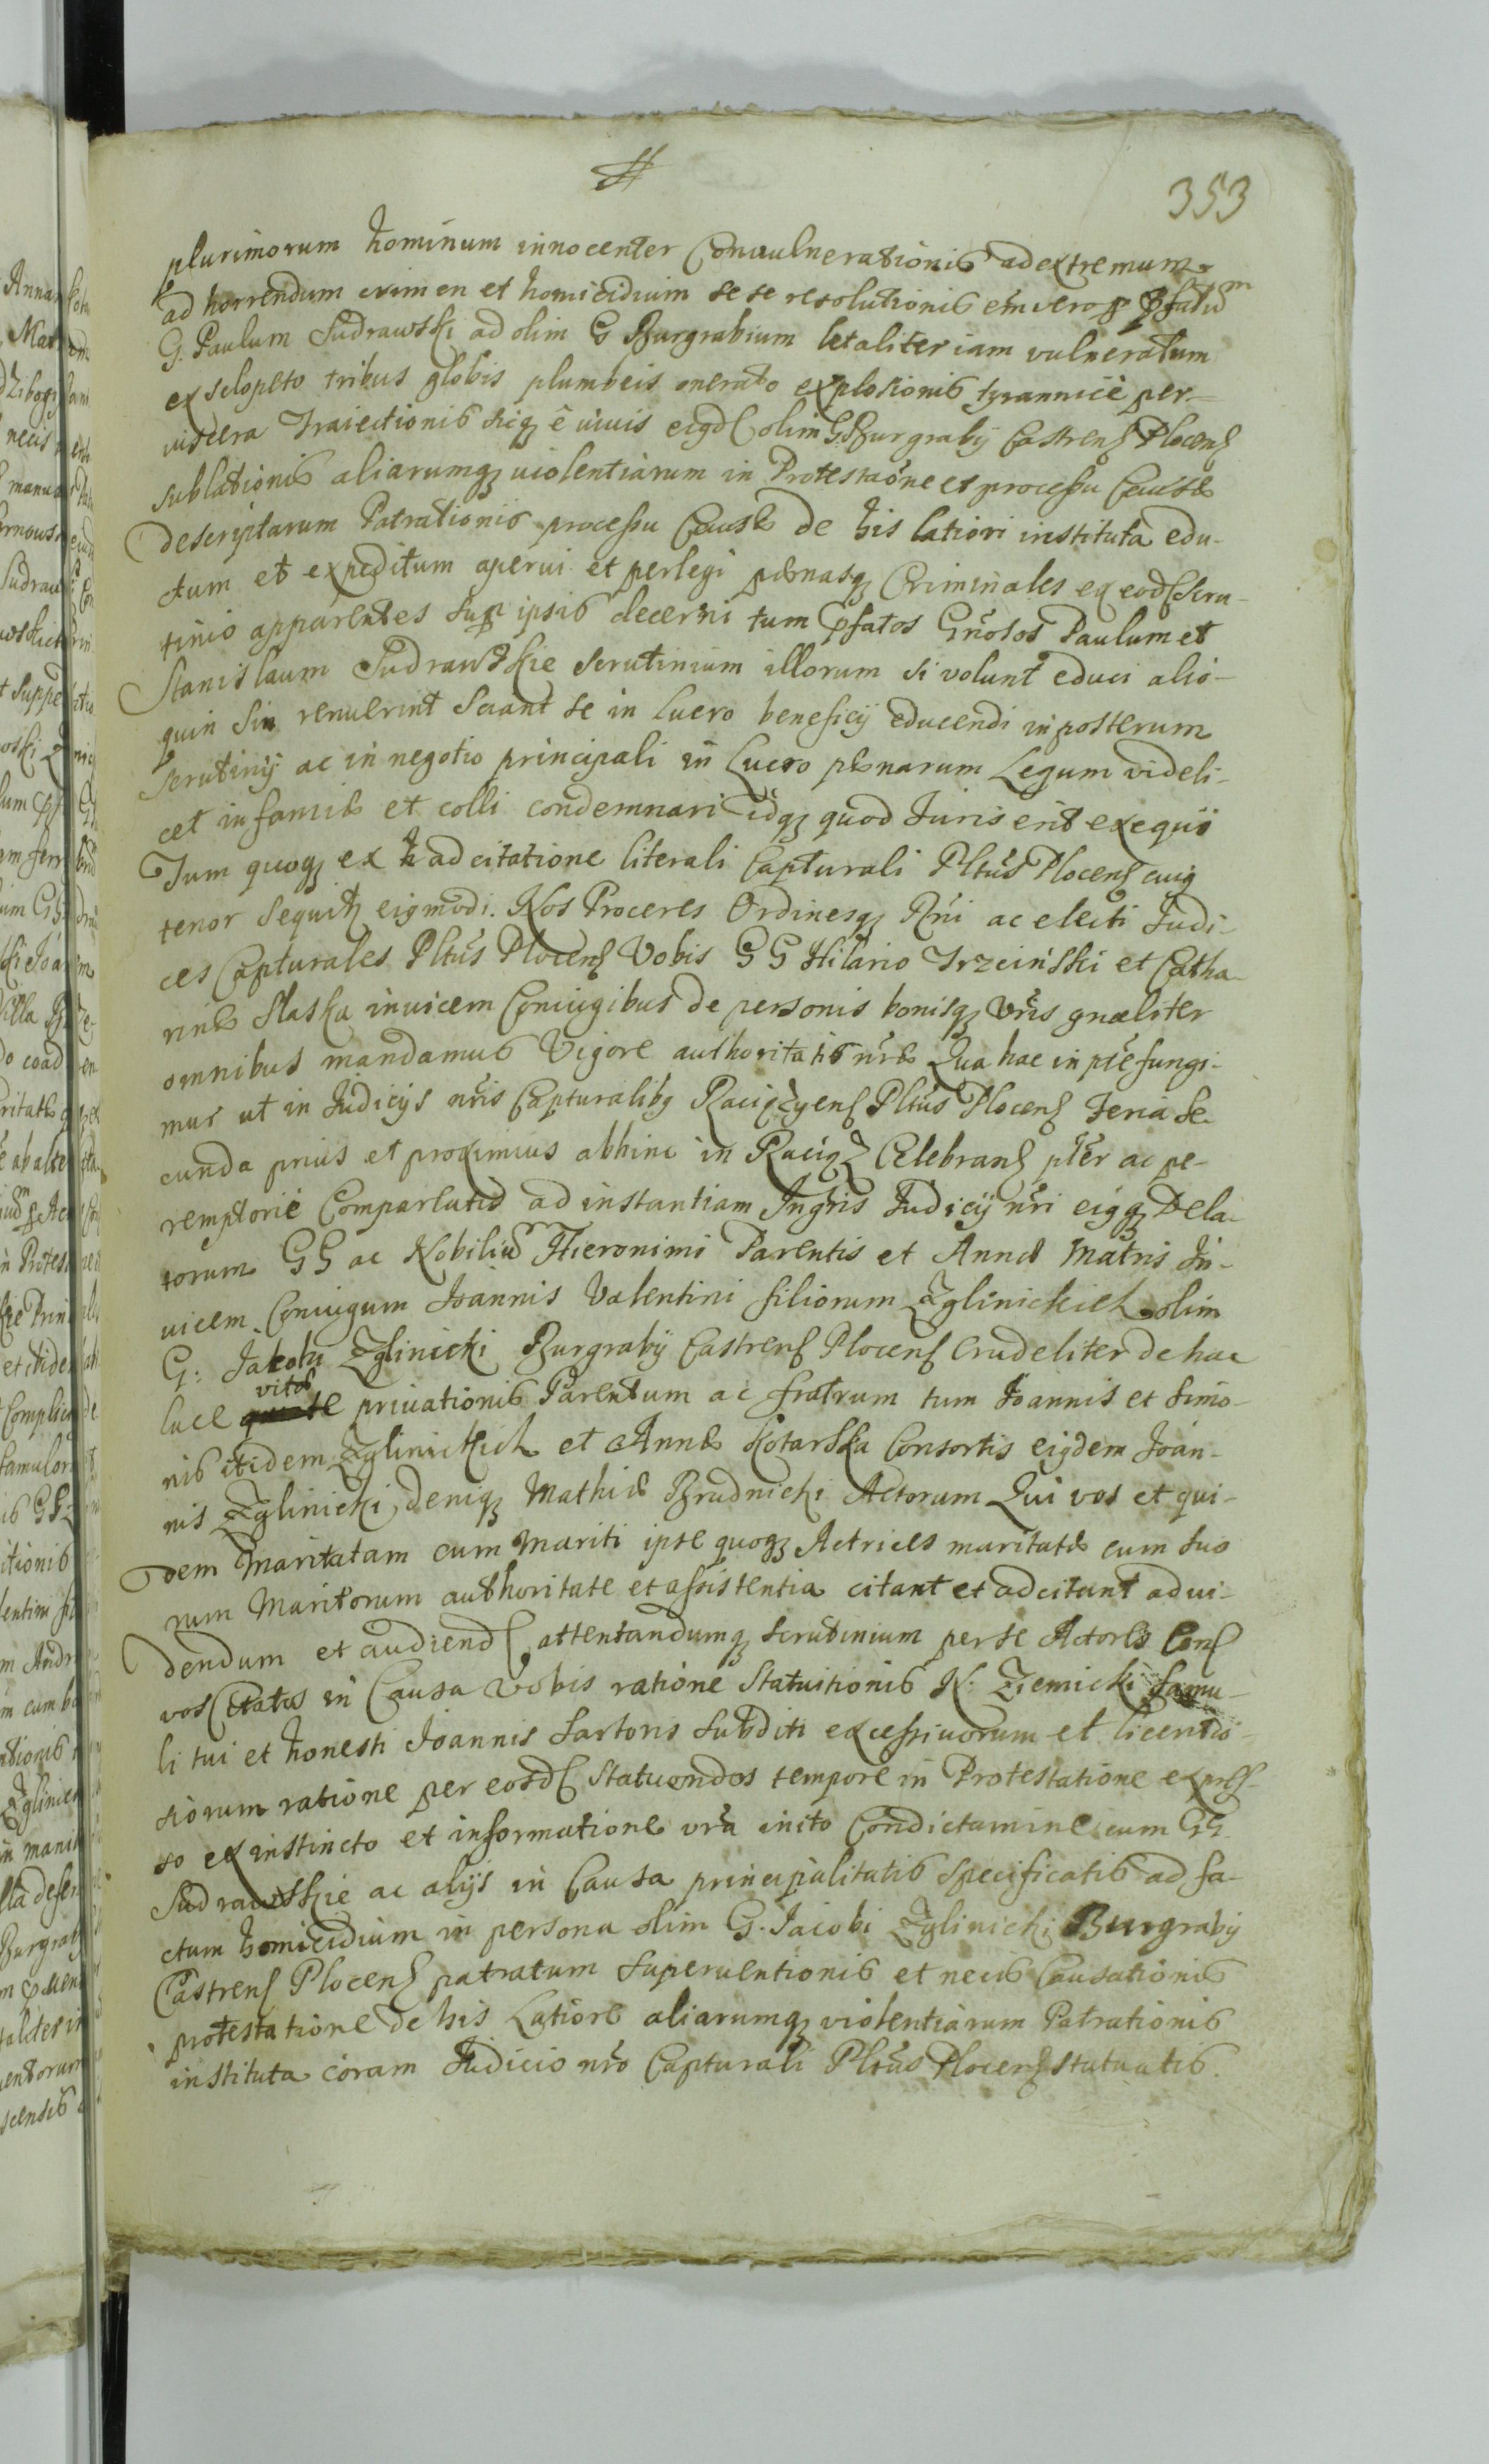 353
plurimorum hominum innocenter Convulnerationis ad extremum
ad horrendum crimen et homicidium se se resolutionis em̃ vero p pfatũm
G. Paulum Sudrawski ad olim G Burgrabium letaliter iam vulneratum
ex sclopeto tribus globis plumbeis onerato explosionis tyrannice per-
viscera Traiectionis sicq ê viuis eigd olim G Burgrabij Castrens Plocens
sublationis aliarumq violentiarum in Protestaõne et processu Causæ
descriptarum Patrationis processu Causæ de his latiori instituta edu-
ctum et expeditum aperui et perlegi pænasq Criminales ex eod Scru-
tinio apparentes sup ipsis decerni tum pfatos Gñosos Paulum et
Stanislaum Sudrawskie Scrutinium illorum si volunt educi alio-
quin Sin renuerint Sciant se in lucro beneficij educendi in posterum
scrutinij ac in negotio principali in Lucro pænarum Legum videli-
cet infamiæ et colli condemnari idq quod Juris erit exequi
Tum quoq ex adcitatione literali Capturali Pltus Plocens cuig
tenor sequit eigmodi. Nos Proceres Ordinesq Rñi ac electi Judi-
ces Capturales Pltus Plocens Vobis GG Hilario Trzciński et Catha-
rinæ Slaska inuicem Coniugibus de personis bonisq vris gnaliter
omnibus mandamus Vigore authoritatis nræ Qua hac in pte fungi-
mur ut in Judicijs nris Capturalibg Raciązyens Pltus Plocens Feria Se
cunda prius et proximius abhinc in Raciąz Celebrans pter ac pe-
remptorie Compareatis ad instantiam Jngris Judicij nri eigq Dela-
torum GG ac Nobiliũm Hieronimi Parentis et Annæ Matris In-
uicem Coniugum Joannis Valentini filiorum Zglinickich olim
G: Jakobi Zglinicki Burgrabij Castrens Plocens Crudeliter de hac
luce vitæ priuationis Parentum ac fratrum tum Joannis et Simo-
nis itidem Zglinickich et Annæ Kotarska Consortis eigdem Joan-
nis Zglinicki, deniq Mathiæ Brudnicki Actorum Qui vos et qui-
dem Maritatam cum Mariti ipse quoq Actrices maritatæ cum suo
rum Maritorum authoritate et assistentia citant et adcitant ad vi-
dendum et audiend attentandumq scrutinium per se Actores Cons
vos Citatos in Causa vobis ratione Statuitionis N: Ziemicki famu-
li tui et honesti Joannis Sartoris subditi excessiuorum et licentio-
siorum ratione per eosd statuendos tempore in Protestatione expres-
so ex instincto et informatione vra inito Condictamine cum GG
Sudrawskie ac alijs in Causa principalitatis specificatis ad fa-
ctum homicidium in persona olim G. Jacobi Zglinicki Burgrabij
Castrens Plocens patratum superuentionis et necis Causationis
protestatione de his Latiore aliarumq violentiarum Patrationis
instituta coram Judicio nro Capturali Pltus Plocens statuatis.